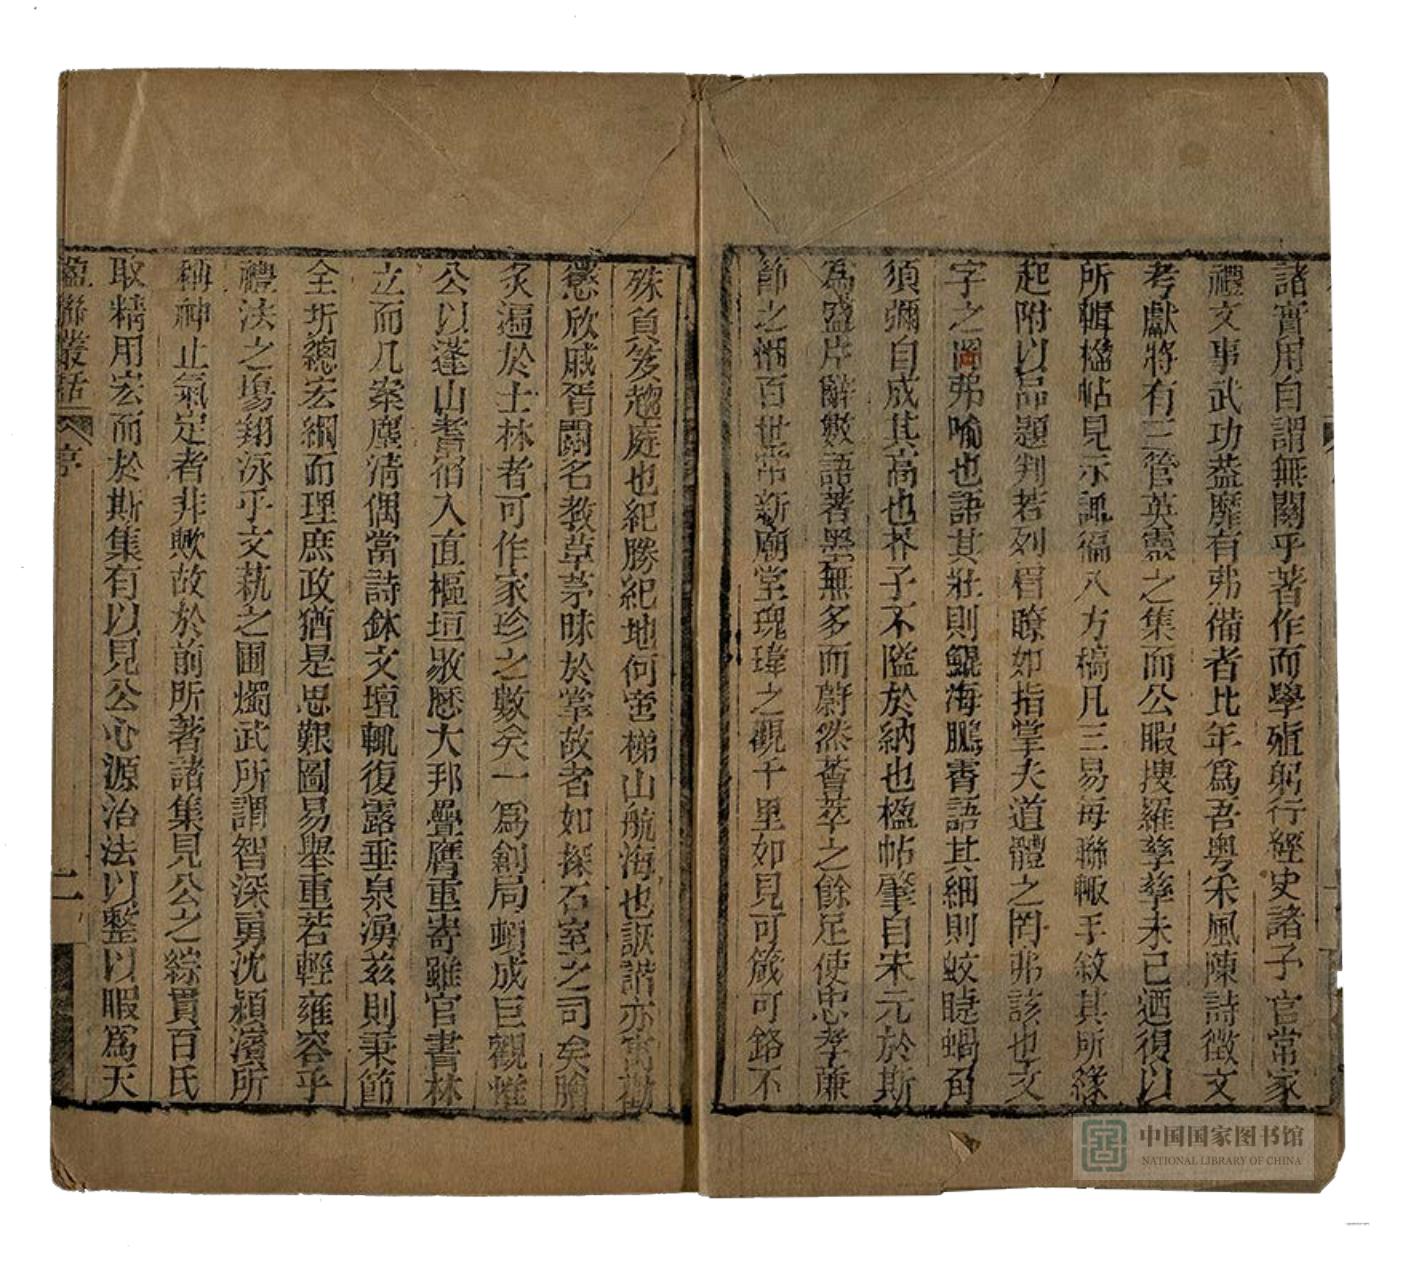 諸實用自謂無關乎著作而學殖躬行經史諸子官常家
禮文事武功葢靡有弗備者比年爲吾粵宋風陳詩徵文
考獻將有三管英靈之集而公暇捜羅孳孳未已迺復以
所輯楹帖見示諏徧八方稿凡三易每聯輙手敘其所緣
起附以品題判若列眉瞭如指掌夫道體之罔弗該也文
字之罔弗喻也語其壯則鯤海鵬霄語其細則蚊睫蝸角
須彌自成其高也芥子不隘於納也楹帖肇自宋元於斯
爲盛片辭數語著墨無多而蔚然薈萃之餘足使忠孝亷
節之悃百世常新廟堂瑰瑋之觀千里如見可箴可銘不
殊負笈趨庭也紀勝紀地何啻梯山航海也詼諧亦寓勸
懲欣戚胥關名教草茅昧於掌故者如探石室之司矣膾
炙遍於士林者可作家珍之數矣一爲創局頓成巨觀惟
公以蓬山耆宿入直樞垣敭歷大邦疊膺重寄雖官書林
立而几案塵清偶當詩鉢文壇輒復露垂泉湧茲則秉節
全圻總宏綱而理庶政猶是思艱圖易舉重若輕雍容乎
禮法之場翔泳乎文埶之圃燭武所謂智深勇沈潁濱所
稱神止氣定者非歟故於前所著諸集見公之綜貫百氏
取精用宏而於斯集有以見公心源治法以整以暇爲天
楹聯叢話
序
二
中国国家图书馆
NATIONAL LIBRARY OF CHINA